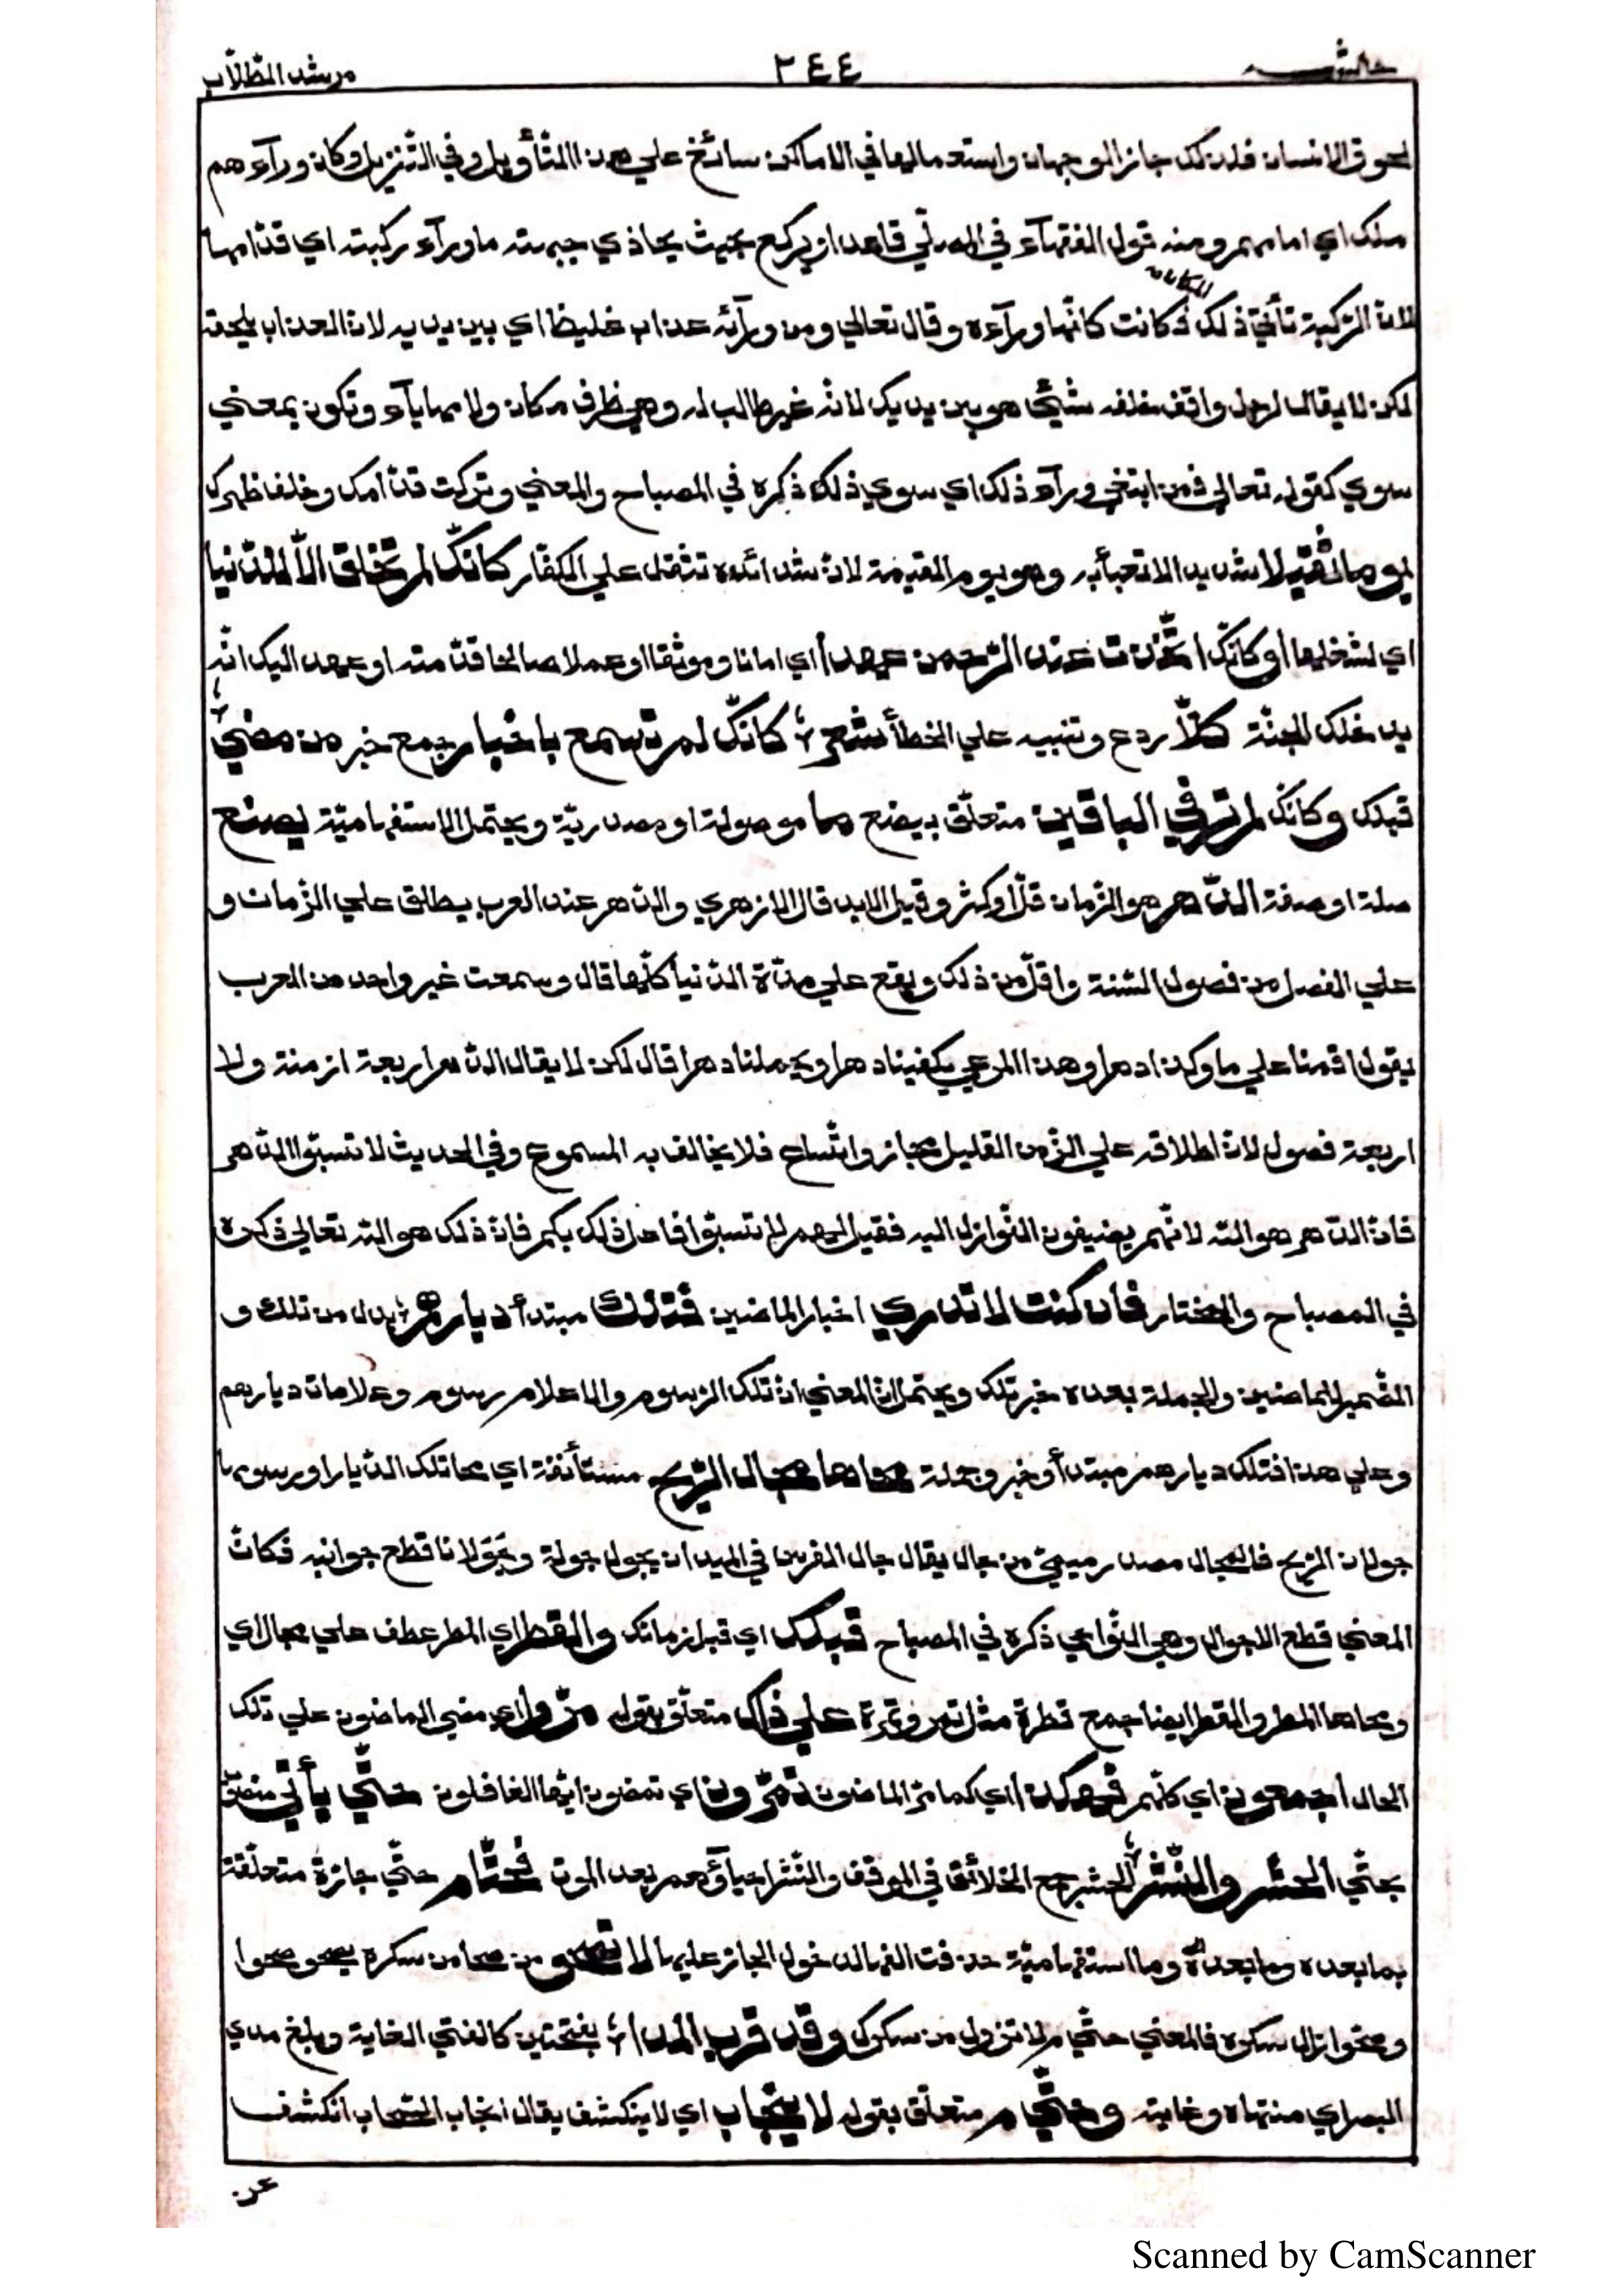 مرشد الطّلّاب ٢٤٤ حاشية
لحوق الانسان فلذلك جاز الوجهان واستعمالها في الاماكن سائغ علي هذا التأويل وفي التنزيل وكان ورآءهم
ملك اي امامهم ومنه قول الفقهآء في المصلّي قاعدا ان يركع بحيث يحاذي جبهته ماورآء ركبته اي قدّامها
لانّ الرّكبة تأتي ذلك فكانت كانّها ورآءه وقال تعالي ومن ورآئه عذاب غليظ اي بين يديه لانّ العذاب يلحقه
لكن لا يقال لرجل واقف خلفه شئي هو بين يديك لانّه غير طالب له وهي ظرف مكان ولامها يآء وتكون بمعني
سوي كقوله تعالي فمن ابتغي ورآء ذلك اي سوي ذلك ذكره في المصباح والمعني وتركت قدّامك وخلف ظهرك
يوما ثقيلا شديد الا تعبأ به وهو يوم القيمة لانّ شدائده تثقل علي الكفّار كانّك لم تخلق الّا للدّنيا
اي لشغلها أو كانّك اتّخذت عند الرّحمن عهدا اي امانا وموثقا او عملا صالحا قدّمته او عهد اليك انّه
يدخلك الجنّة كلّا ردع وتنبيه علي الخطأ شعر كانّك لم تسمع باخبار جمع خبر من مضيٰ
قبلك وكانّك لم تر في الباقين متعلّق بيصنع ما موصولة او مصدريّة ويحتمل الاستفهاميّة يصنع
صلة او صفة الدّهر هو الزّمان قلّ او كثر وقيل الابد قال الازهري والدّهر عند العرب يطلق علي الزّمان و
علي الفصل من فصول السّنة واقلّ من ذلك ويقع علي مدّة الدّنيا كلّها قال وسمعت غير واحد من العرب
يقول اقمنا علي ما وكذا دهرا وهذا المرعي يكفينا دهرا ويحملنا دهرا قال لكن لا يقال الدّهر اربعة ازمنة ولا
اربعة فصول لانّ اطلاقه علي الزّمن القليل مجاز واتّساع فلا يخالف به المسموع وفي الحديث لا تسبّوا الدّهر
فانّ الدّهر هو اللّه لانّهم يضيفون النّوازل اليه فقيل لهم لا تسبّوا فاعل ذلك بكم فانّ ذلك هو اللّه تعالي ذكره
في المصباح والمختار فان كنت لا تدري اخبار الماضين فتلك مبتدأ ديارهم بدل من تلك و
الضّمير للماضين والجملة بعده خبر تلك ويحتمل انّ المعني انّ تلك الرّسوم والاعلام رسوم وعلامات ديارهم
وعلي هذا فتلك ديارهم مبتدأ وخبر وجملة محاها مجال الرّيح مستأنفة اي محا تلك الدّيار او رسومها
جولان الرّيح فالمجال مصدر ميميّ من جال يقال جال الفرس في الميدان يجول جولة وجولانا قطع جوانبه فكانّ
المعني قطع الاجوال وهي النّواحي ذكره في المصباح قبلك اي قبل زمانك والقطر اي المطر عطف علي مجال اي
ومحاها المطر والقطر ايضا جمع قطرة مثل تمر وتمرة علي ذاك متعلّق بقوله مرّوا اي مضي الماضون علي ذلك
الحال اجمعون اي كلّهم فهكذا اي كما مرّ الماضون تمرّون اي تمضون ايّها الغافلون حتّي يأتي
يجئي الحشر والنّشر الحشر جمع الخلائق في الموقف والنّشر احياؤهم بعد الموت فحتّام حتّي جارّة متعلّقة
بما بعده وما بعده وما استفهاميّة حذفت الفها لدخول الجار عليها لا تصحو من صحا من سكره يصحو صحوا
وصحوّا زال سكره فالمعني حتّي م لا تزول من سكرك وقد قرب المدا بفتحتين كالفتي الغاية وبلغ مدي
البصر اي منتهاه وغايته وحتّي م متعلّق بقوله لا ينجاب اي لا ينكشف يقال انجاب السّحاب انكشف
عن
Scanned by CamScanner